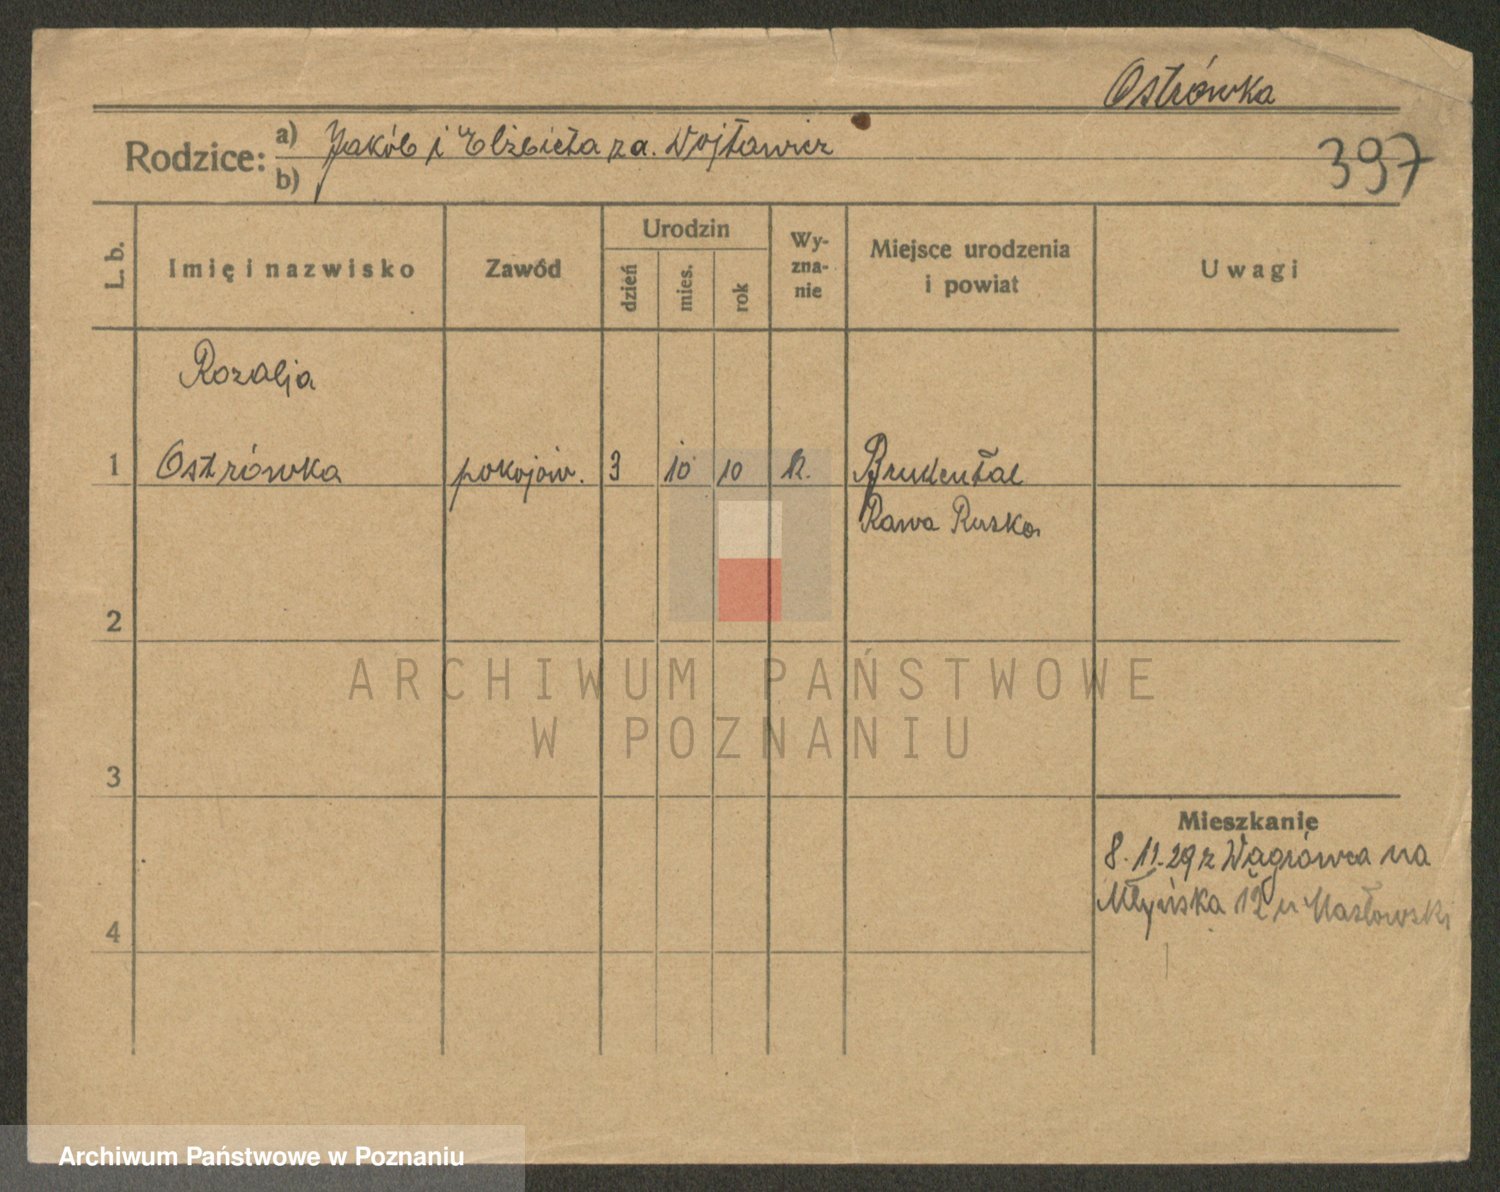 Ostrówka
Rodzice: a) Jakób i Elżbieta z d. Wojtawicz
b)
397
L. b.
Imię i nazwisko
Zawód
Urodzin
dzień
mies.
rok
Wy-
zna-
nie
Miejsce urodzenia
i powiat
Uwagi
Rozalja
1 Ostrówka pokojów. 3 10 10 R. Brudental
Rawa Ruska
2
ARCHIWUM PAŃSTWOWE
W POZNANIU
3
Mieszkanie
8.11.29 z Wągrówca na
Młyńska 12 u Masłowski
4
Archiwum Państwowe w Poznaniu